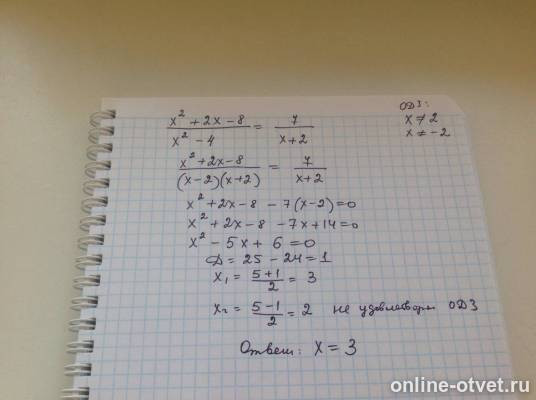 ОДЗ:
x ≠ 2
x ≠ -2
(x² + 2x - 8)/(x² - 4) = 7/(x+2)
(x² + 2x - 8)/((x-2)(x+2)) = 7/(x+2)
x² + 2x - 8 - 7(x-2) = 0
x² + 2x - 8 - 7x + 14 = 0
x² - 5x + 6 = 0
D = 25 - 24 = 1
x₁ = (5+1)/2 = 3
x₂ = (5-1)/2 = 2 не удовлетвор ОДЗ
Ответ: x = 3
online-otvet.ru